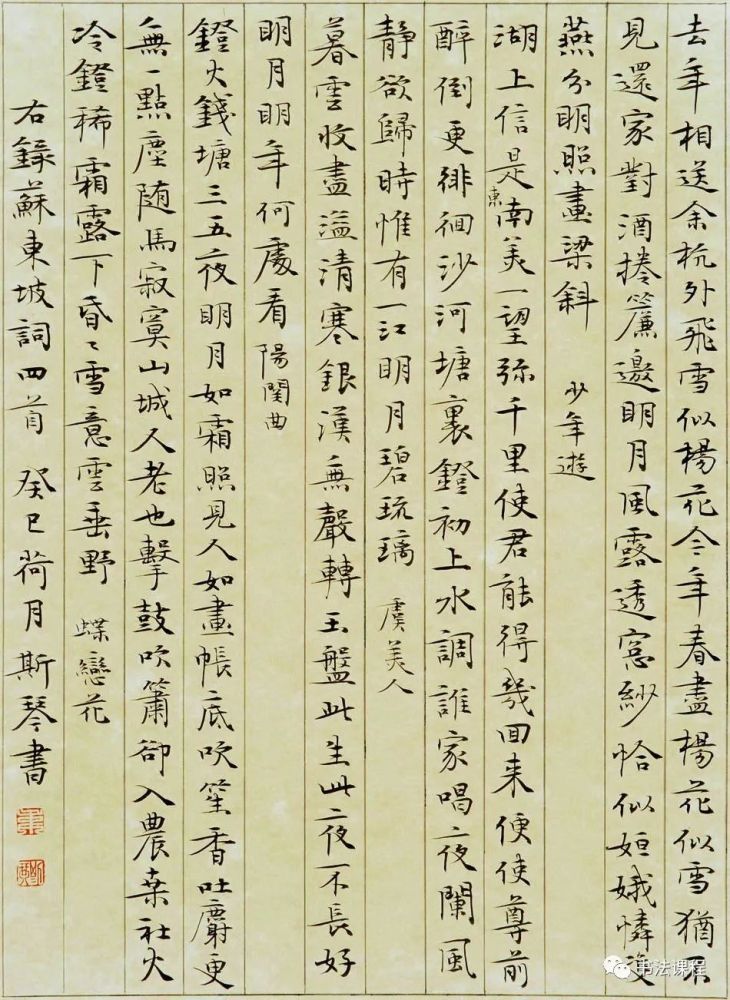 去年相送余杭外飛雪似楊花今年春盡楊花似雪猶不
見還家對酒捲簾邀明月風露透窓紗恰似姮娥憐雙
燕分明照畫梁斜 少年遊
湖上信是東南美一望弥千里使君能得幾回来便使尊前
醉倒更徘徊沙河塘裏鐙初上水調誰家唱夜闌風
静欲歸時惟有一江明月碧琉璃 虞美人
暮雲收盡溢清寒銀漢無聲轉玉盤此生此夜不長好
明月明年何處看 陽関曲
鐙火錢塘三五夜明月如霜照見人如畫帳底吹笙香吐麝更
無一點塵随馬寂寞山城人老也擊鼓吹簫卻入農桒社火
冷鐙稀霜露下昏〻雪意雲垂野 蝶戀花
右錄蘇東坡詞四首 癸巳荷月斯琴書
书法课程